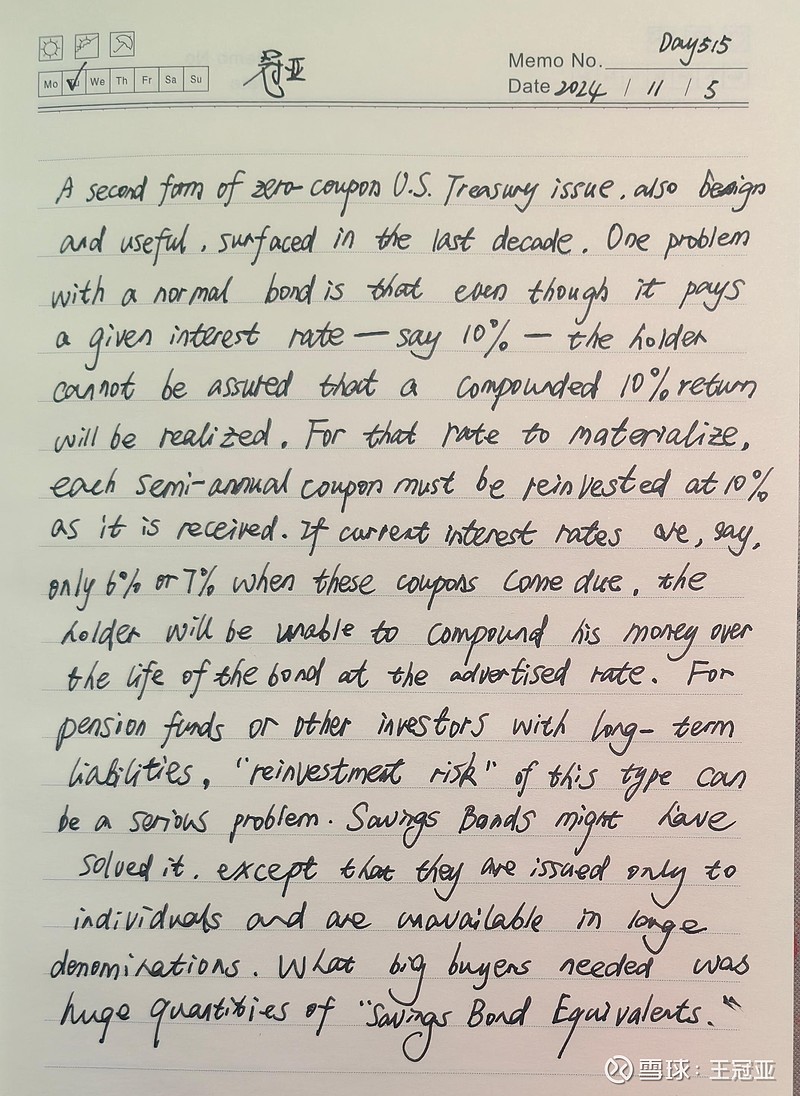 Day515
冠亚
Memo No.
Mo Tu We Th Fr Sa Su
Date 2024 / 11 / 5
A second form of zero-coupon U.S. Treasury issue, also benign
and useful, surfaced in the last decade. One problem
with a normal bond is that even though it pays
a given interest rate — say 10% — the holder
cannot be assured that a compounded 10% return
will be realized. For that rate to materialize,
each semi-annual coupon must be reinvested at 10%
as it is received. If current interest rates are, say,
only 6% or 7% when these coupons come due, the
holder will be unable to compound his money over
the life of the bond at the advertised rate. For
pension funds or other investors with long-term
liabilities, "reinvestment risk" of this type can
be a serious problem. Savings Bonds might have
solved it, except that they are issued only to
individuals and are unavailable in large
denominations. What big buyers needed was
huge quantities of "Savings Bond Equivalents."
雪球：王冠亚